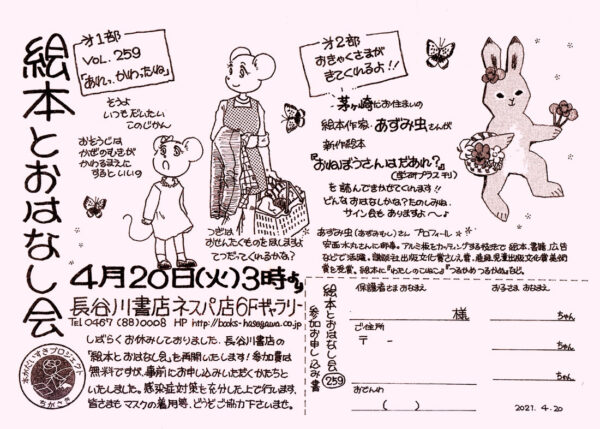 絵本とおはなし会
第1部
VOL. 259
「あれっ、かわったね」
そうよ
いつもだいたい
このじかん
おそうじは
かぜのむきが
かわるまえに
するといいの
つぎは
おせんたくものをほしますよ
てつだってくれるかな？
第2部
おきゃくさまが
きてくれるよ!!
茅ヶ崎にお住まいの
絵本作家・あずみ虫さんが
新作絵本
『おねぼうさんはだあれ？』
(学研プラス刊)
を読んできかせてくれます!!
どんなおはなしかな？たのしみね
サイン会もありますよ〜♪
あずみ虫(あずみむし)さん プロフィール
安西水丸さんに師事。アルミ板をカッティングする技法で 絵本、書籍、広告
などで活躍。講談社出版文化賞さしえ賞、産経児童出版文化賞美術
賞を受賞。絵本に『わたしのこねこ』『つるかめつるかめ』など。
4月20日(火)3時より
長谷川書店ネスパ店6Fギャラリー
Tel 0467 (88)0008 HP http://books-hasegawa.co.jp
しばらくお休みしておりました、長谷川書店の
「絵本とおはなし会」を再開いたします！参加費は
無料ですが、事前にお申し込みいただくかたちと
いたしました。感染症対策を充分した上で行います、
皆さまもマスクの着用等、どうぞご協力下さいませ。
本がだいすきプロジェクト
ちがさき
絵本とおはなし会
259
参加お申し込み書
保護者さまおなまえ
様
おこさまおなまえ
ちゃん
ちゃん
ちゃん
ご住所
〒 -
おでんわ
( )
2021. 4.20